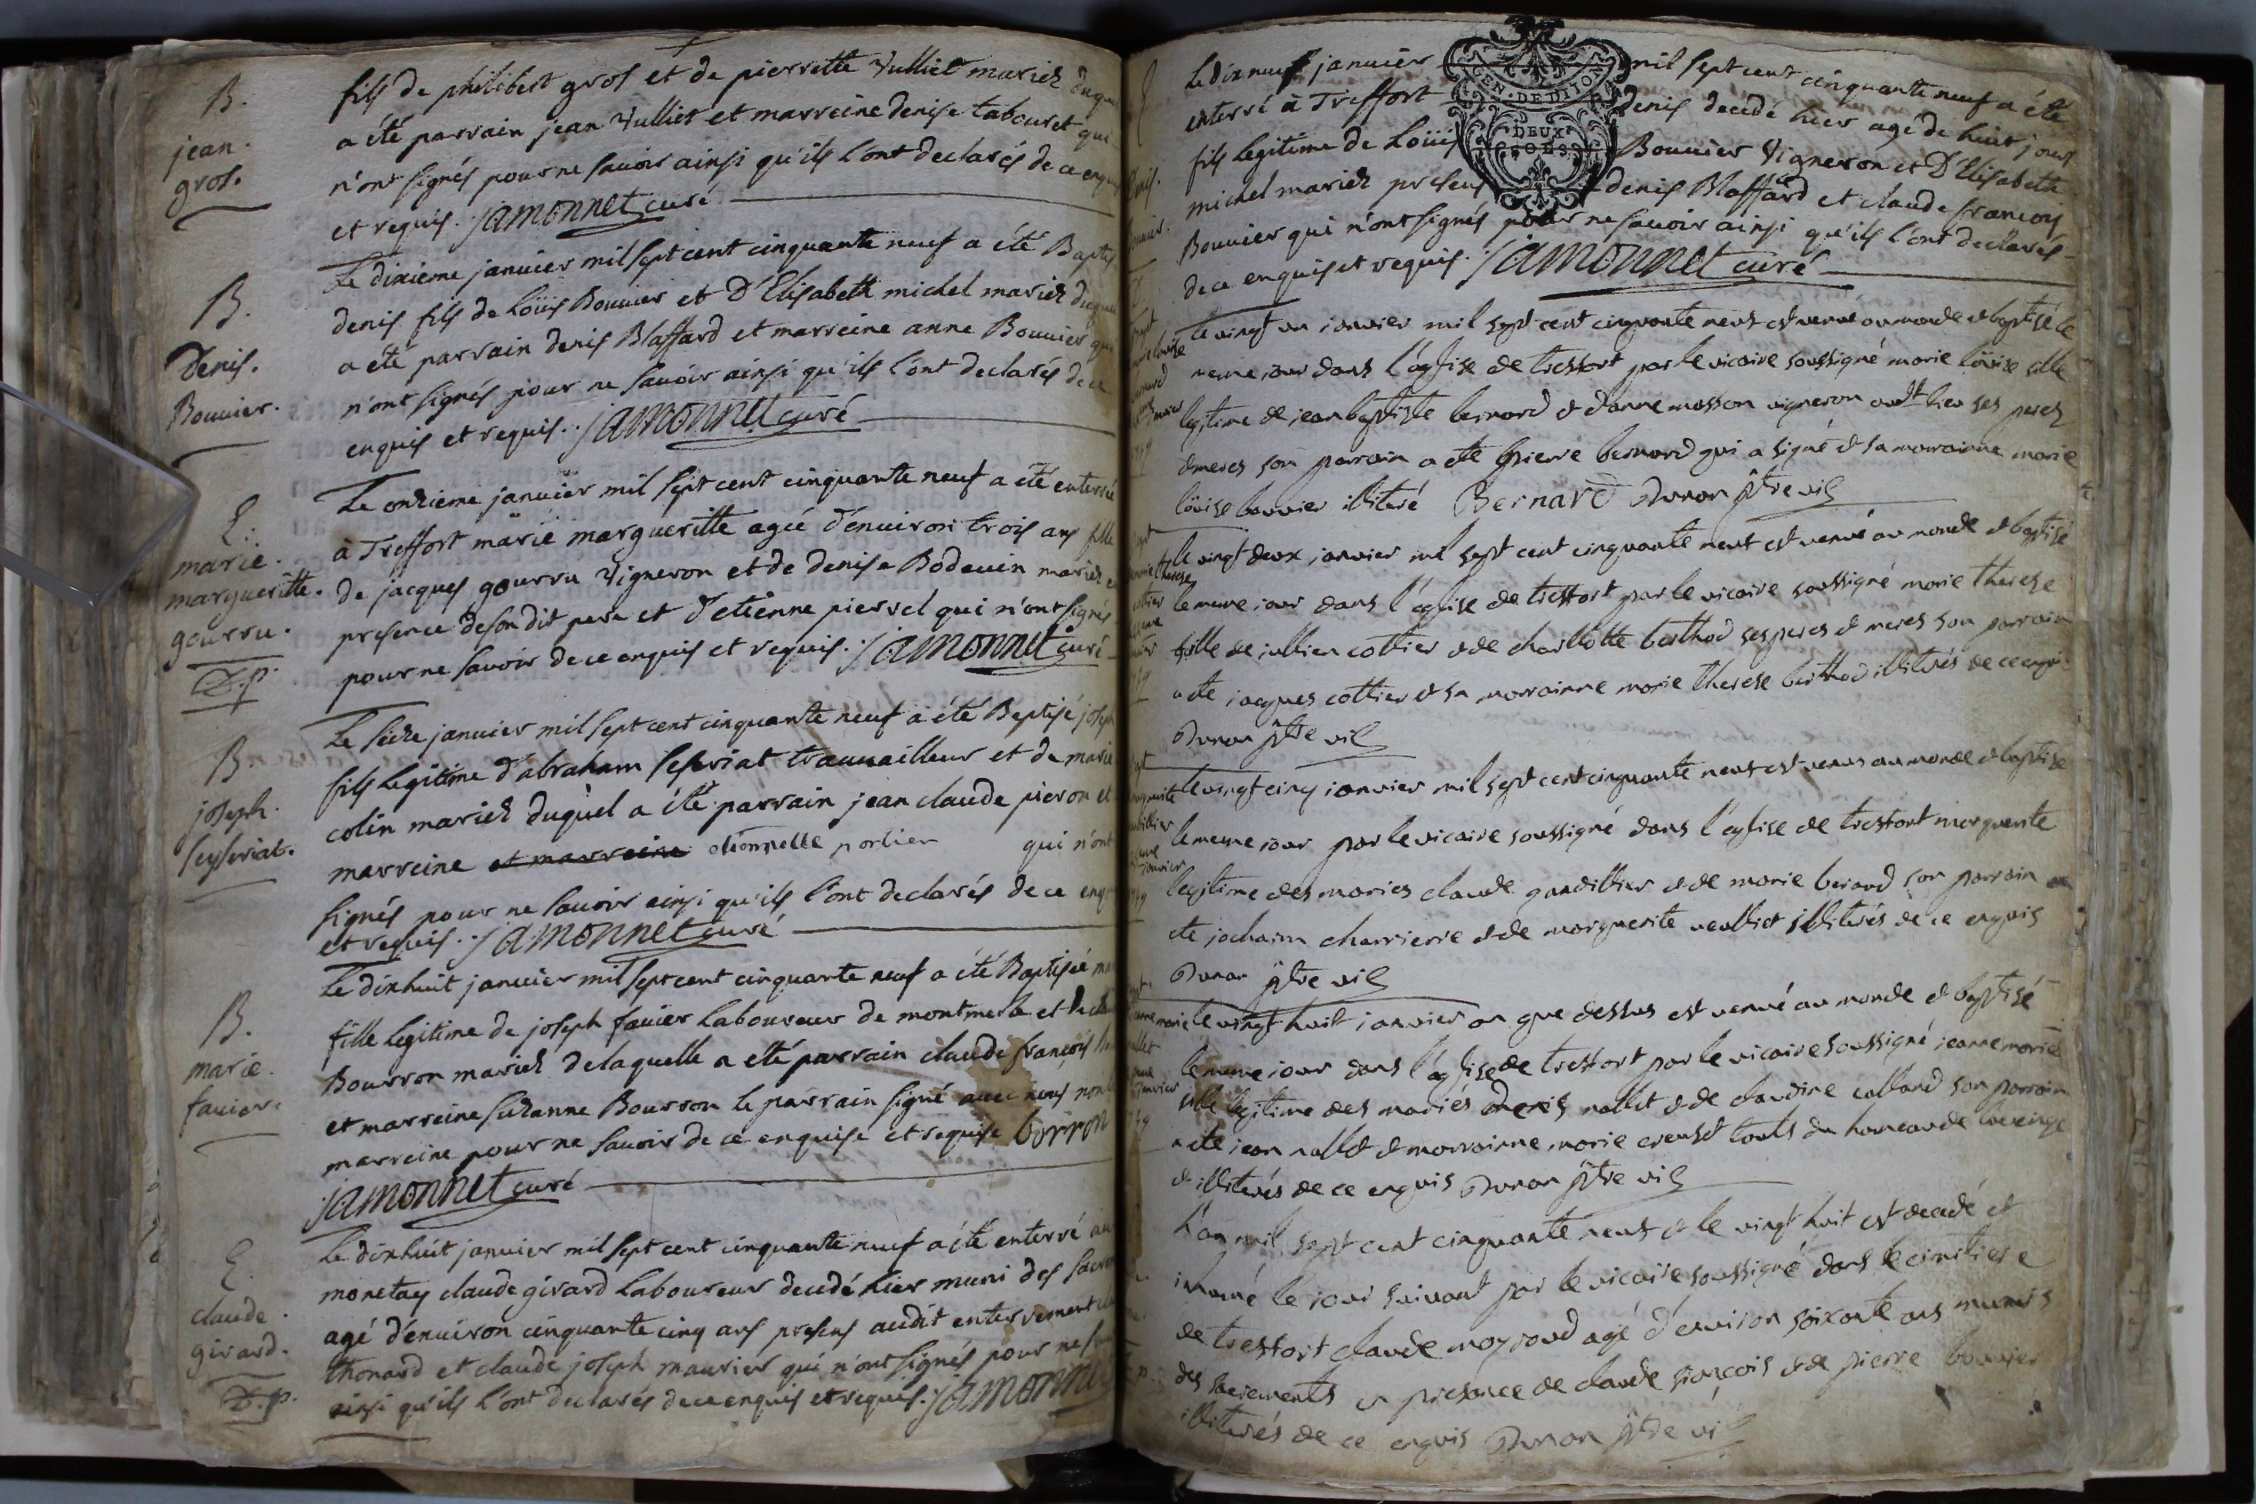 B.
jean.
gros.
fils de philibert gros et de pierrette Vulliet mariez duquel
a été parrain jean Vulliet et marreine denise tabouret qui
n'ont signés pour ne savoir ainsi qu'ils l'ont declarés de ce enquis
et requis. jamonnet curé
B.
Denis.
Bouvier.
Le dixieme janvier mil sept cent cinquante neuf a été Baptisé
denis fils de Loüis Bouvier et D'Elisabeth michel mariez duquel
a été parrain denis Blaffard et marreine anne Bouvier qui
n'ont signés pour ne savoir ainsi qu'ils l'ont declarés de ce
enquis et requis. jamonnet curé
E.
marie.
margueritte.
gourru.
D.p.
Le onzieme janvier mil sept cent cinquante neuf a été enterrée
à Treffort marie margueritte agée d'environ trois ans fille
de jacques gourru Vigneron et de denise Bodevin mariez en
presence de son dit pere et d'etienne pierrel qui n'ont signés
pour ne savoir de ce enquis et requis. jamonnet curé
B
joseph.
seyseriat.
Le seize janvier mil sept cent cinquante neuf a été Baptisé joseph
fils legitime d'abraham seseriat travailleur et de marie
colin mariez duquel a été parrain jean claude pieron et
marreine et marreine otionnette portier qui n'ont
signés pour ne savoir ainsi qu'ils l'ont declarés de ce enquis
et requis. jamonnet curé
B.
marie.
favier.
Le dixhuit janvier mil sept cent cinquante neuf a été Baptisée
fille legitime de joseph favier Laboureur de montmerle et
Bourron mariez de laquelle a été parrain claude françois
et marreine suzanne Bourron le parrain signé avec nous non
marreine pour ne savoir de ce enquise et requise borron
jamonnet curé
E.
claude.
girard.
D.p.
Le dixhuit janvier mil sept cent cinquante neuf a été enterré au
monetay claude girard Laboureur decedé hier muni des
agé d'environ cinquante cinq ans presens audit enterrement
thonard et claude joseph maurier qui n'ont signés pour ne
ainsi qu'ils l'ont declarés de ce enquis et requis. jamonnet
GEN. DE DIJON
DEUX
SOUS
Le dixneuf janvier mil sept cent cinquante neuf a été
enterré à Treffort denis decedé hier agé de huit jours
fils legitime de Loüis Bouvier Vigneron et D'Elisabeth
michel mariez presens denis Blaffard et claude francois
Bouvier qui n'ont signés pour ne savoir ainsi qu'ils l'ont declarés
de ce enquis et requis. jamonnet curé
le vingt un janvier mil sept cent cinquante neuf est venue au monde et baptisé le
meme iour dans l'église de treffort par le vicaire soussigné marie löuise fille
legitime de jean baptiste bernard et d'anne masson vigneron audt lieu ses peres
et meres son parrain a ete pierre bernard qui a signé et sa marrainne marie
löuise bouvier illiteré Bernard Duran ptre vic
le vingt deux janvier mil sept cent cinquante neuf est venue au monde et baptisé
le meme iour dans l'eglise de treffort par le vicaire soussigné marie therese
fille de jullien cottier et de charlotte berthod ses peres et meres son parrain
a ete jacques cottier et sa marrainne marie therese berthod illiterés de ce enquis
Duran ptre vic
le vingt cinq janvier mil sept cent cinquante neuf est venue au monde et baptisée
le meme iour par le vicaire soussigné dans l'eglise de treffort marguerite
legitime des maries claude gaudillier et de marie berard son parrain a
ete jochaim charrierre et de marguerite vulliet illiterés de ce enquis
Duran ptre vic
le vingt huit janvier an que dessus est venué au monde et baptisé
le meme iour dans l'eglise de treffort par le vicaire soussigné jeanne marie
fille legitime des mariés denis nallet et de claudine collard son parrain
a ete jean nallet et marrainne marie creuset touts du hameau de
et illiterés de ce enquis Duran ptre vic
L'an mil sept cent cinquante neuf et le vingt huit est decedé et
inhumé le jour suivant par le vicaire soussigné dans le cimitiere
de treffort claude moyrond agé d'environ soixante ans munis
des sacrements en presence de claude françois et de pierre bouvier
illiterés de ce enquis Duran ptre vic